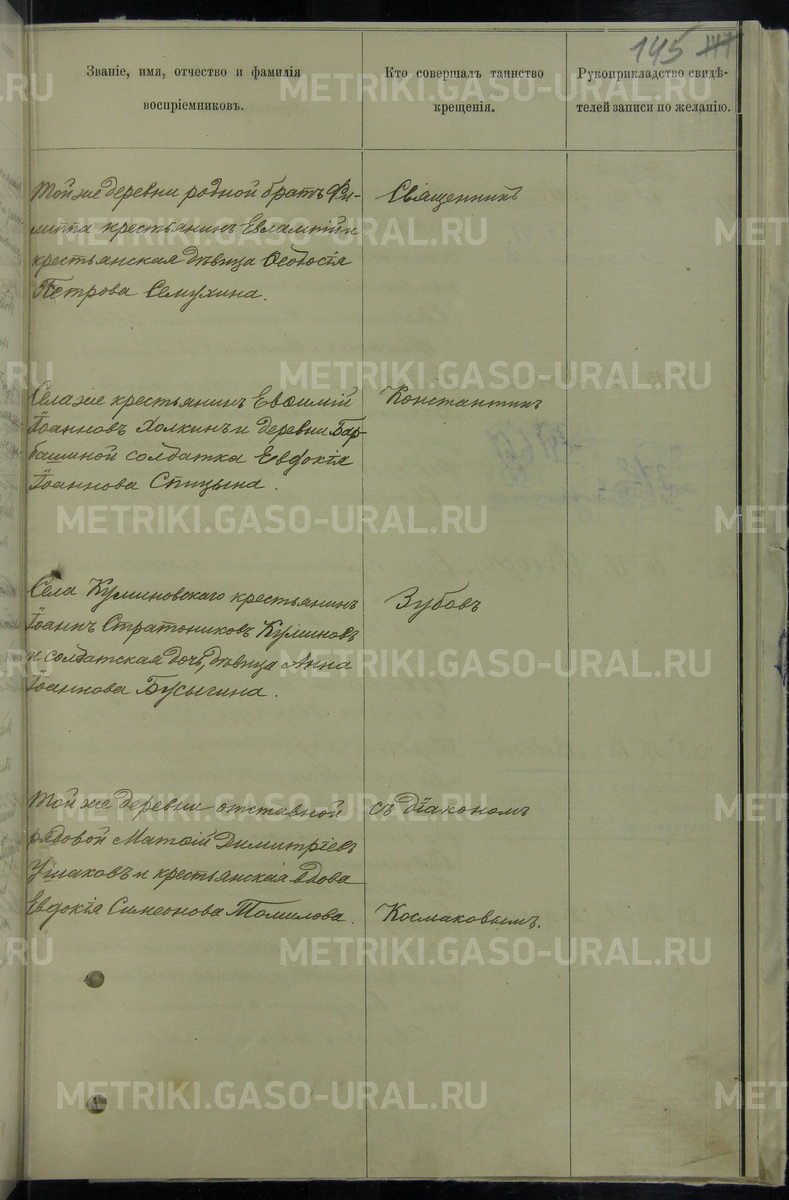 145
Званіе, имя, отчество и фамилія
воспріемниковъ.
Кто совершалъ таинство
крещенія.
Рукоприкладство свидѣ-
телей записи по желанію.
Той же деревни родной братъ Фи-
липпа крестьянинъ Евлампій и
крестьянская дѣвица Ѳеодосія
Петрова Семухина.
Священникъ
Села же крестьянинъ Евѳимій
Іоанновъ Холкинъ и деревни Бар-
башиной солдатка Евдокія
Іоаннова Спицына.
Константинъ
Села Куминовскаго крестьянинъ
Іоаннъ Стратониковъ Куминовъ
и солдатская дочь, дѣвица Анна
Іоаннова Букыгина.
Зубовъ
Той же деревни отставной
рядовой Матѳій Димитріевъ
Ушаковъ и крестьянская вдова
Евдокія Симеонова Томилова.
съ діакономъ
Космаковымъ.
METRIKI.GASO-URAL.RU